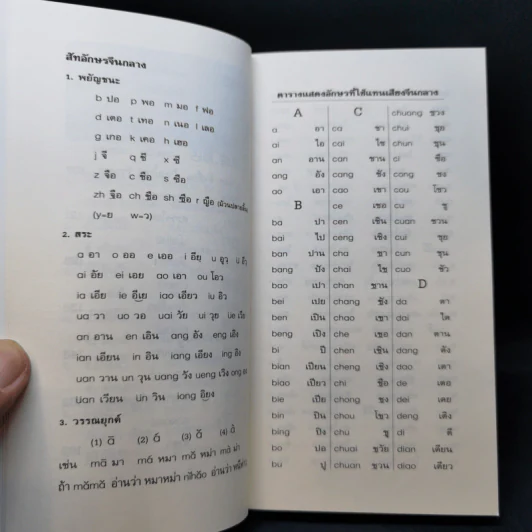 สัทลักษรจีนกลาง
1. พยัญชนะ
b ปอ p พอ m มอ f ฟอ
d เตอ t เทอ n เนอ l เลอ
g เกอ k เคอ h เฮอ
j จี q ชี x ซี
z จือ c ชือ s ซือ
zh จือ ch ชือ sh ซือ r ญือ
(y=ย w=ว)
2. สระ
a อา o ออ e เออ i อี u อู ü
ai อัย ei เอย ao เอา ou โอว
ia เอีย ie iao เอียว iu อิว
ua วา uo วอ uai วัย ui วุย üe เวีย
an อาน en เอิน ang อัง eng เอิง
ian เอียน in อิน iang เอียง ing อิง
uan วาน un วุน uang วัง ueng เวิง ong
üan เวียน ün วิน iong
3. วรรณยุกต์
(1) ā (2) á (3) ǎ (4) à
เช่น mā มา má หมา mǎ หม่า mà ม่า
ถ้า mǎmǎ อ่านว่า หมาหม่า nǐhǎo อ่านว่า
ตารางแสดงลักษรที่ใช้แทนเสียงจีนกลาง
A C chuang ชวง
a อา ca ชา chui ชุย
ai ไอ cai ไช chun ชุน
an อาน can ชาน ci ชือ
ang อัง cang ชัง cong ชง
ao เอา cao เชา cou โชว
B ce เชอ cu ชู
ba ปา cen เชิน cuan ชวน
bai ไป ceng เชิง cui ชุย
ban ปาน cha ชา cun ชุน
bang ปัง chai ไช cuo ชัว
bao เปา chan ชาน D
bei เปย chang ชัง da ตา
ben เปิน chao เชา dai ไต
beng เปิง che เชอ dan ตาน
bi ปี chen เชิน dang ตัง
bian เปียน cheng เชิง dao เตา
biao เปียว chi ชือ de เตอ
bie เปีย chong ชง dei เตย
bin ปิน chou โชว deng เติง
bing ปิง chu ชู di ตี
bo ปอ chuai ชวัย dian เตียน
bu ปู chuan ชวน diao เตียว